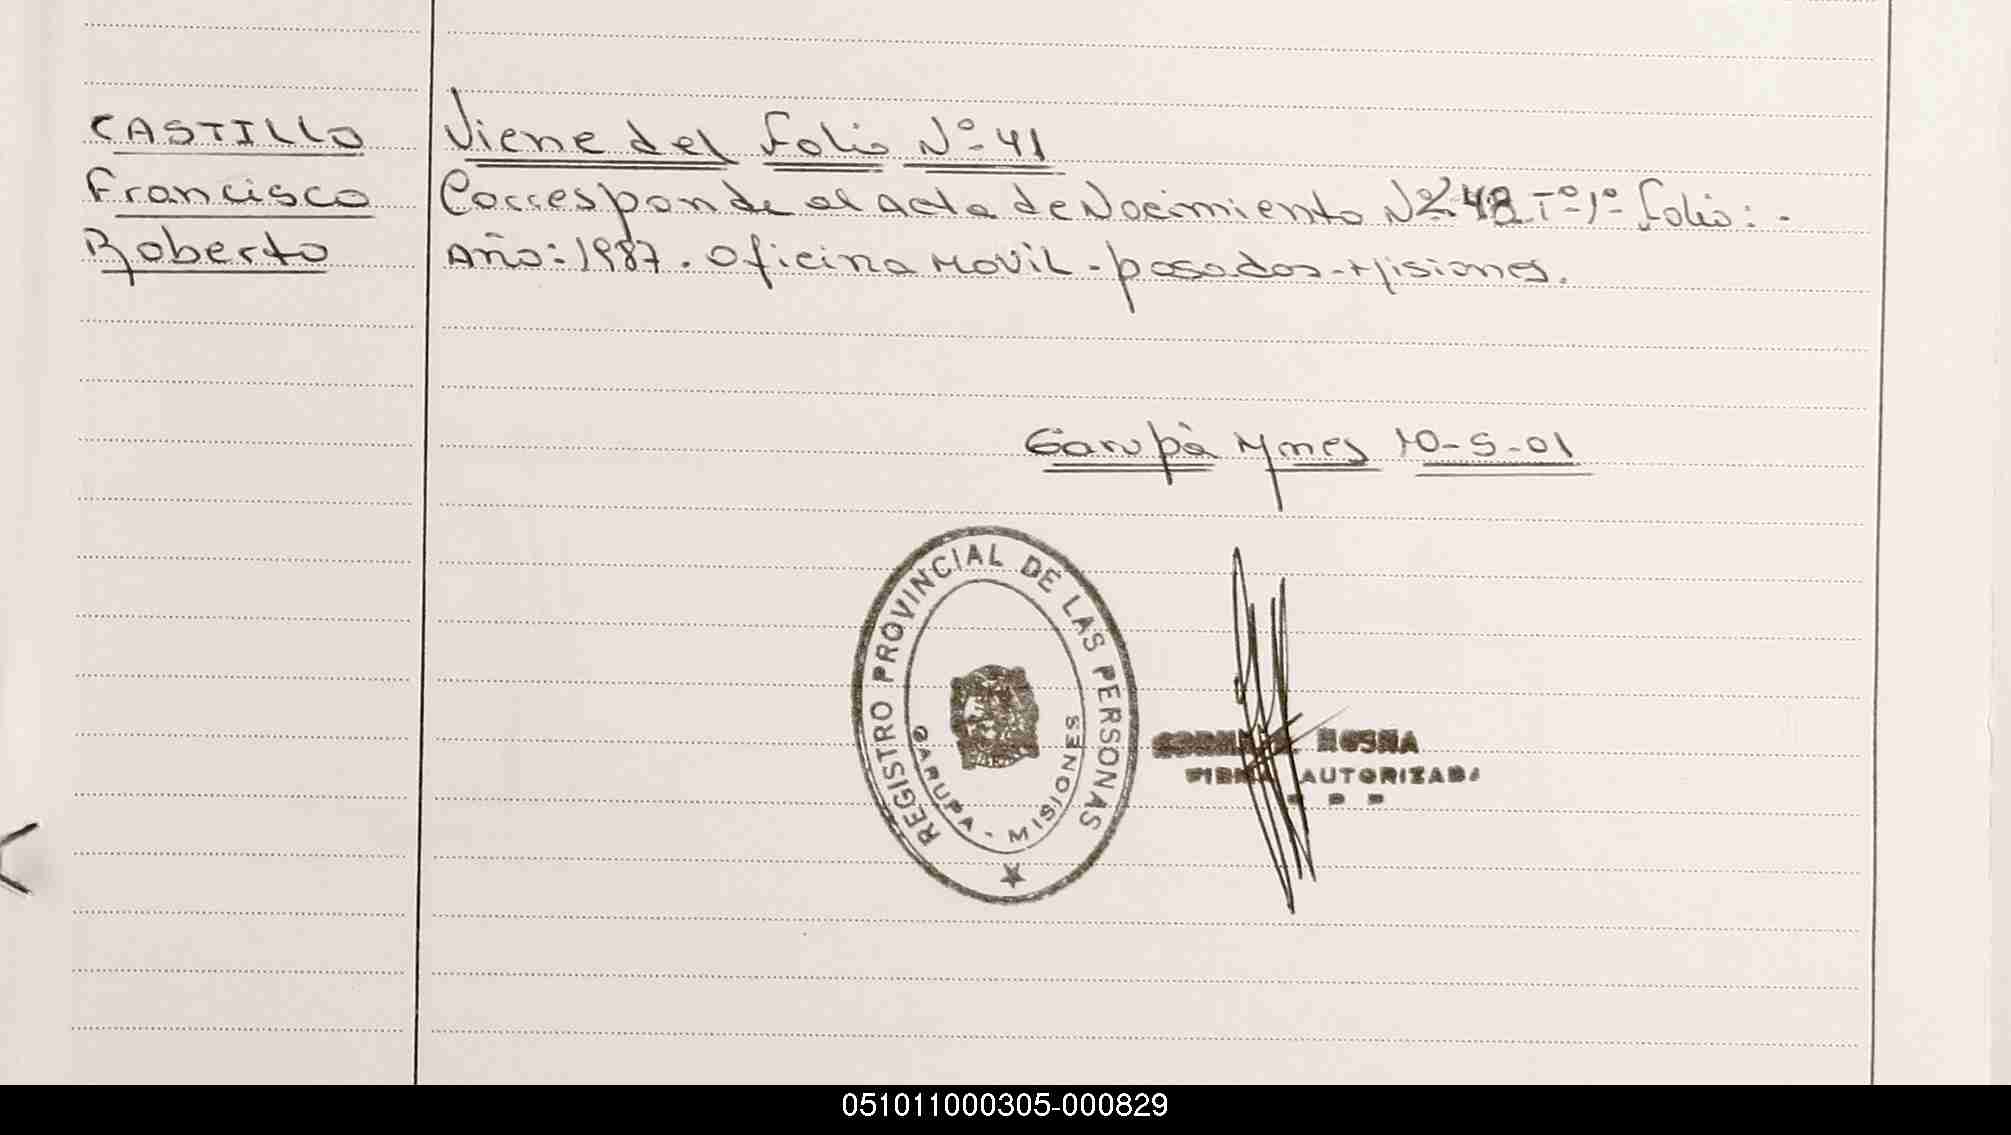 CASTILLO
Francisco
Roberto
Viene del Folio Nº 41
Corresponde al acta de Nacimiento Nº 48 Tº 1º Folio: -
Año: 1987. Oficina Movil - posadas - Misiones.
Garupà Mnes 10-5-01
REGISTRO PROVINCIAL DE LAS PERSONAS
GARUPA - MISIONES
AUTORIZADA
051011000305-000829